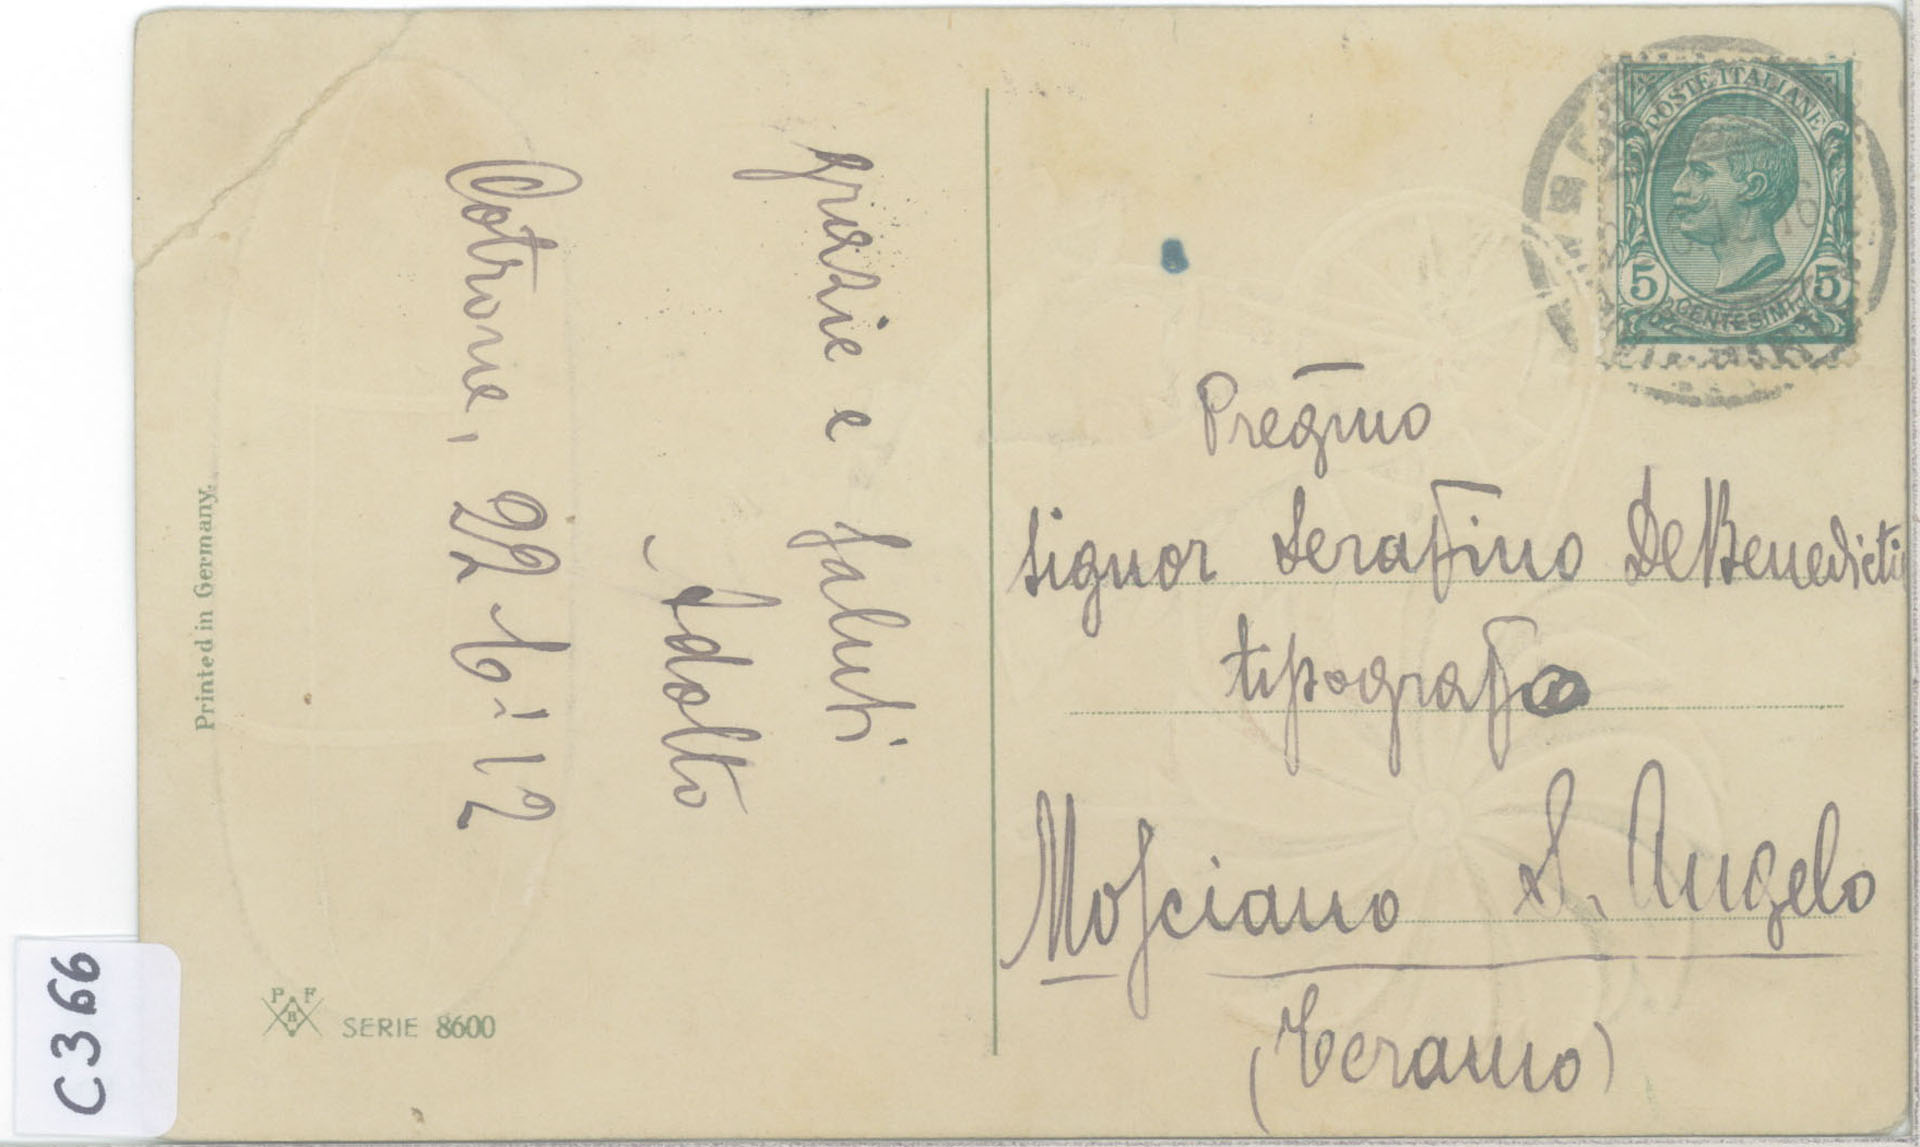 grazie e saluti
Adolfo
Cotrone, 22-6-12
Printed in Germany.
P F
B
SERIE 8600
C366
POSTE ITALIANE
5 5
CENTESIMI
Pregmo
Signor Serafino De Benedictis
tipografo
Mosciano S. Angelo
(Teramo)